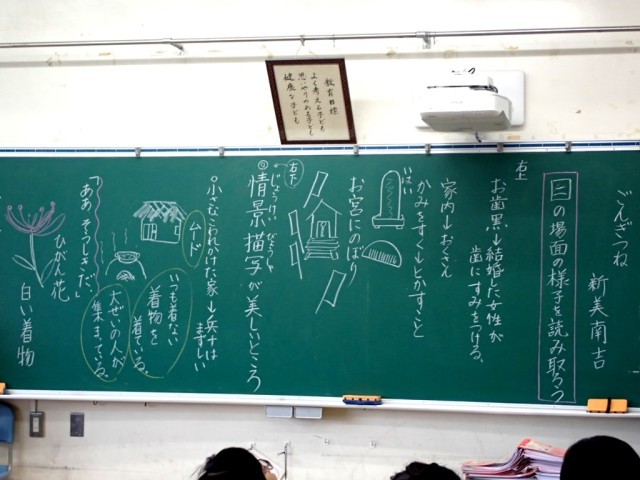 教育目標
よく考える子ども
思いやりのある子ども
健康な子ども
ごんぎつね
新美南吉
二の場面の様子を読み取ろう
右上
お歯黒→結婚した女性が
歯にすみをつける。
家内→おくさん
かみをすく→とかすこと
いはい
お宮にのぼり
右下
じょうけい びょうしゃ
情景描写が美しいところ
ムード
小さなこわれかけた家→兵十は
まずしい
いつも着ない
着物を
着ている。
大ぜいの人が
集まっている。
「ああ そう式だ。」
ひがん花
白い着物